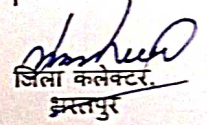 जिला कलेक्टर.
भरतपुर